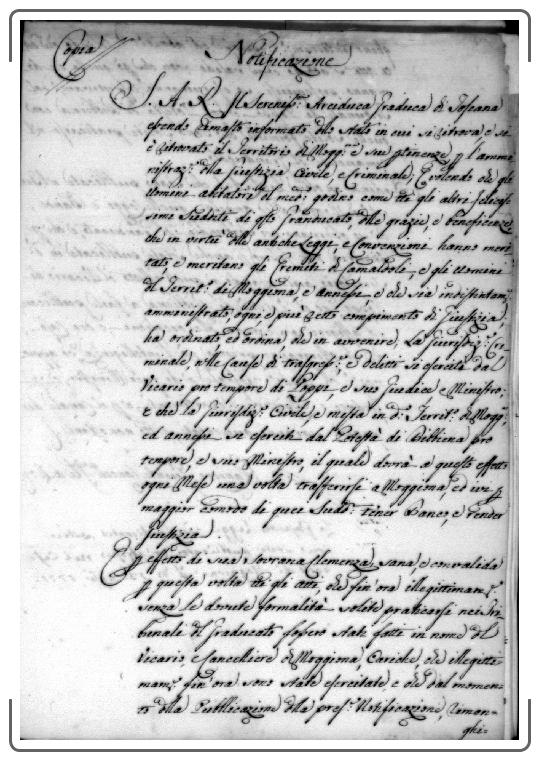 Copia
Notificazione
S. A. R. Il Sereniss.º Arciduca Granduca di Toscana
essendo rimasto informato dello stato in cui si ritrova, e si
è ritrovato il Territorio di Mogg.ª e sue ptinenze p l'ammi
nistraz.e della Giustizia Civile, e Criminale; E volendo che gli
Uomini abitatori il med.º godino come tti gli altri
sudditi di qsto Granducato, delle grazie, e beneficenze
che in virtù delle antiche Leggi, e Convenzioni hanno meri
tati, e meritano gli Eremiti di Camaldoli, e gli Uomini
del Territ.º di Moggiona, e annessi, e che sia indistintam.e
amministrato ogni, e più retto compimento di Giustizia,
ha ordinato, ed ordina che in avvenire, La Giurisdiz.e Cri
minale, nelle Cause di trasgress.i, e delitti si eserciti dal
Vicario pro tempore di Poppi, e suo Giudice e Ministro;
e che la Giurisdiz.e Civile, e mista in d.º Territ.º di Mogg.ª
ed annessi si eserciti dal Potestà di Bibbiena pro
tempore, e suo Ministro, il quale dovrà a questo effetto
ogni Mese una volta trasferirsi a Moggiona, ed ivi p
maggior comodo di quei Sudd.i tener Banco, e render
Giustizia.
E p effetto di sua sovrana Clemenza, sana, e convalida
p questa volta tti gli atti, che fin' ora illegittimam.e
senza le dovute formalità solite praticarsi nei Tri
bunali del Granducato fossero stati fatti in nome del
Vicario, e Cancelliere di Moggiona, Cariche, che illegitti
mam.e fin' ora sono state esercitate, e che dal momen
to della Pubblicazione della pres.e Notificazione, riman-
ghi=